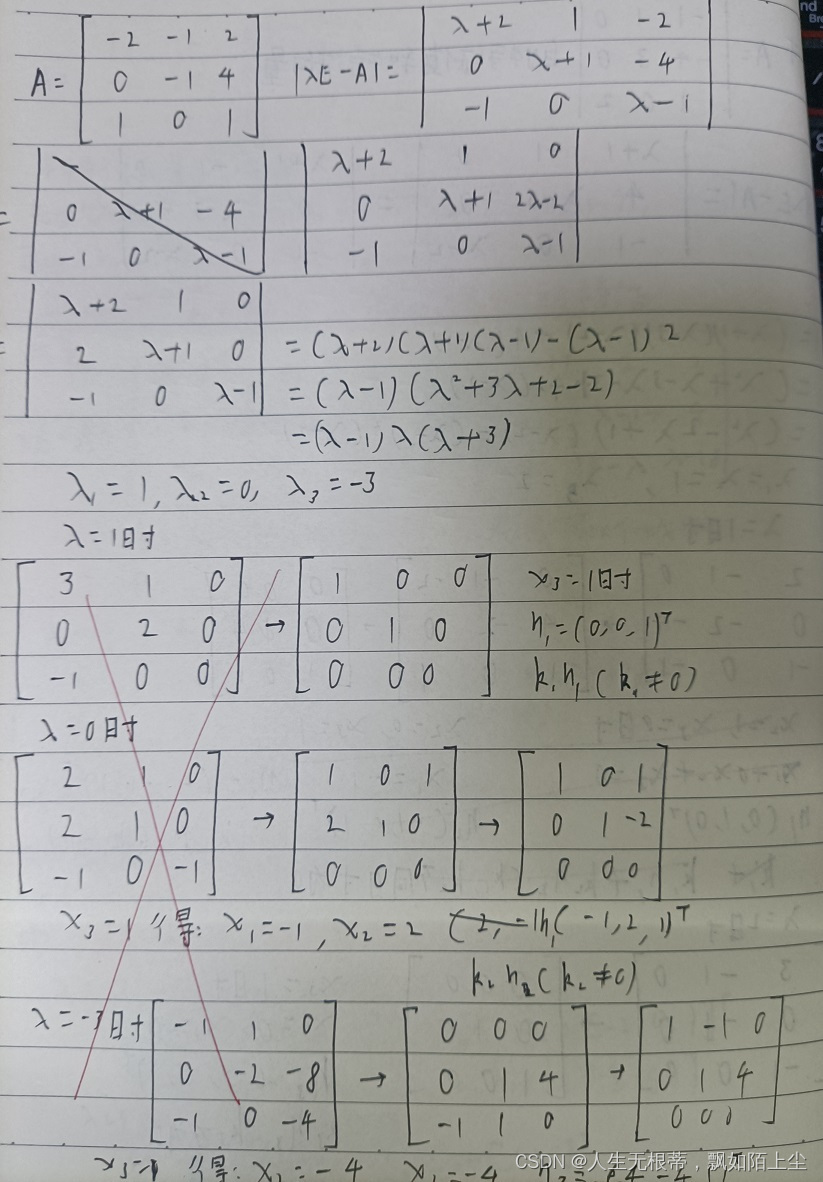 A = [ -2 -1 2 ; 0 -1 4 ; 1 0 1 ] |λE-A| = | λ+2 1 -2 ; 0 λ+1 -4 ; -1 0 λ-1 |
= | 0 λ+1 -4 ; -1 0 λ-1 | | λ+2 1 0 ; 0 λ+1 2λ-2 ; -1 0 λ-1 |
= | λ+2 1 0 ; 2 λ+1 0 ; -1 0 λ-1 | = (λ+2)(λ+1)(λ-1)-(λ-1)2
= (λ-1)(λ²+3λ+2-2)
= (λ-1)λ(λ+3)
λ₁=1, λ₂=0, λ₃=-3
λ=1时
[ 3 1 0 ; 0 2 0 ; -1 0 0 ] → [ 1 0 0 ; 0 1 0 ; 0 0 0 ] x₃=1时
η₁=(0,0,1)ᵀ
k₁η₁(k₁≠0)
λ=0时
[ 2 1 0 ; 2 1 0 ; -1 0 -1 ] → [ 1 0 1 ; 2 1 0 ; 0 0 0 ] → [ 1 0 1 ; 0 1 -2 ; 0 0 0 ]
x₃=1得: x₁=-1, x₂=2 (2, -1 η₁(-1,2,1)ᵀ
k₂η₂(k₂≠0)
λ=-3时 [ -1 1 0 ; 0 -2 -8 ; -1 0 -4 ] → [ 0 0 0 ; 0 1 4 ; -1 1 0 ] → [ 1 -1 0 ; 0 1 4 ; 0 0 0 ]
得: x₂=-4 x₁=-4
CSDN @人生无根蒂，飘如陌上尘
nd